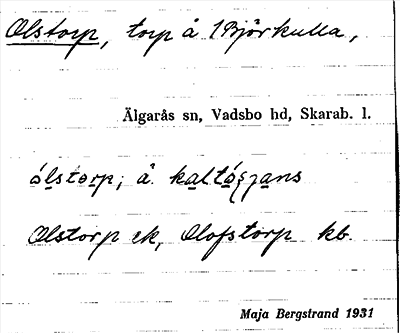 Olstorp, torp å Björkulla,
Älgarås sn, Vadsbo hd, Skarab. l.
ólstorp; å
Olstorp ek, Olofstorp kb.
Maja Bergstrand 1931